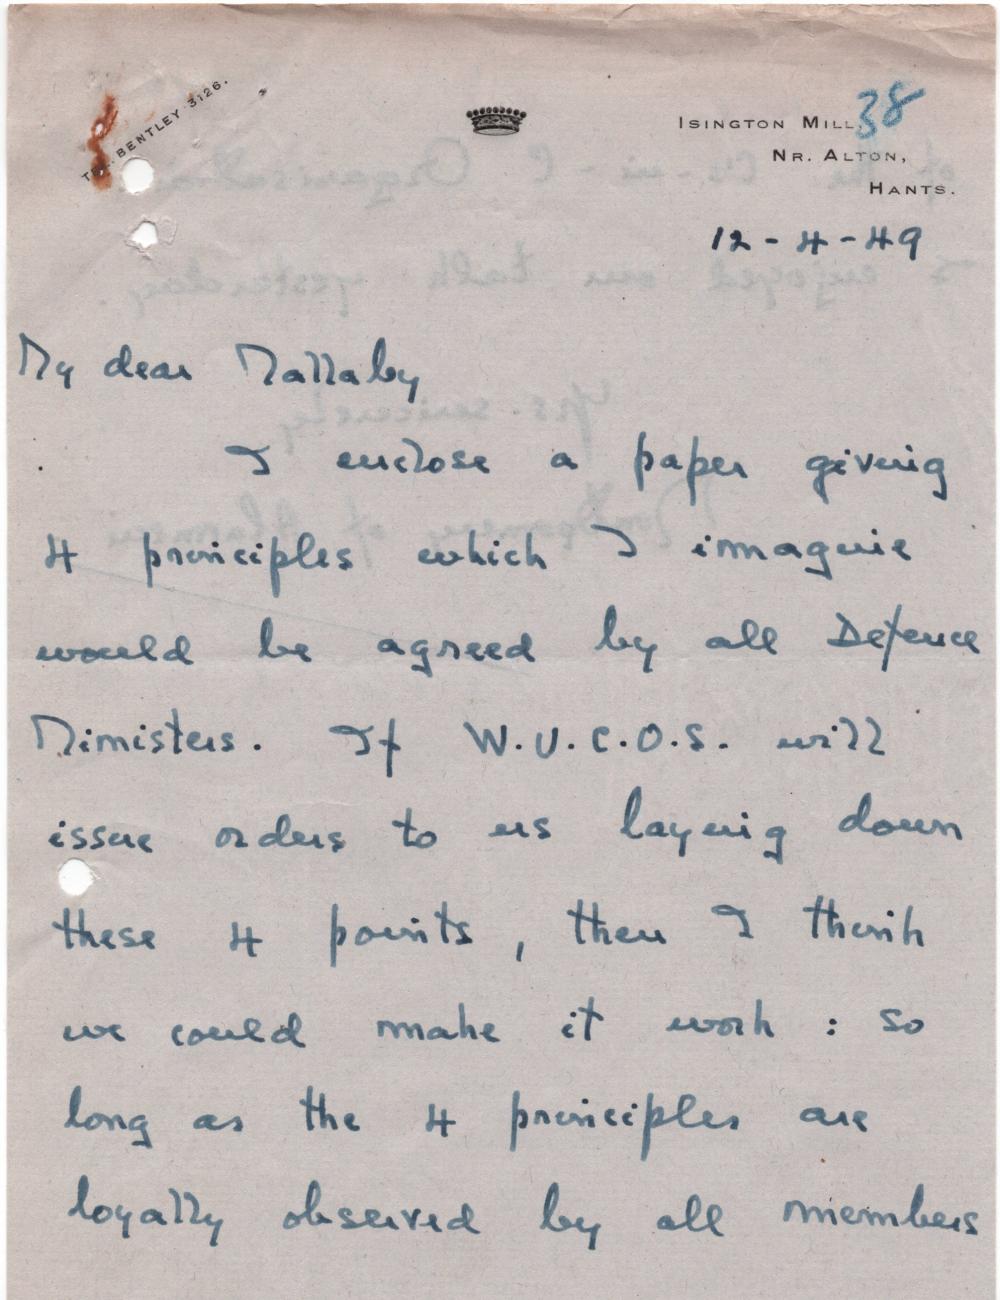 TEL. BENTLEY 3126.
ISINGTON MILL, 38
NR. ALTON,
HANTS.
12-4-49
My dear Mallaby
I enclose a paper giving
4 principles which I imagine
would be agreed by all Defence
Ministers. If W.U.C.O.S. will
issue orders to us laying down
these 4 points, then I think
we could make it work : so
long as the 4 principles are
loyally observed by all members
of the Cs-in-C Organisation.
I enjoyed our talk yesterday.
Yrs. sincerely
Montgomery of Alamein